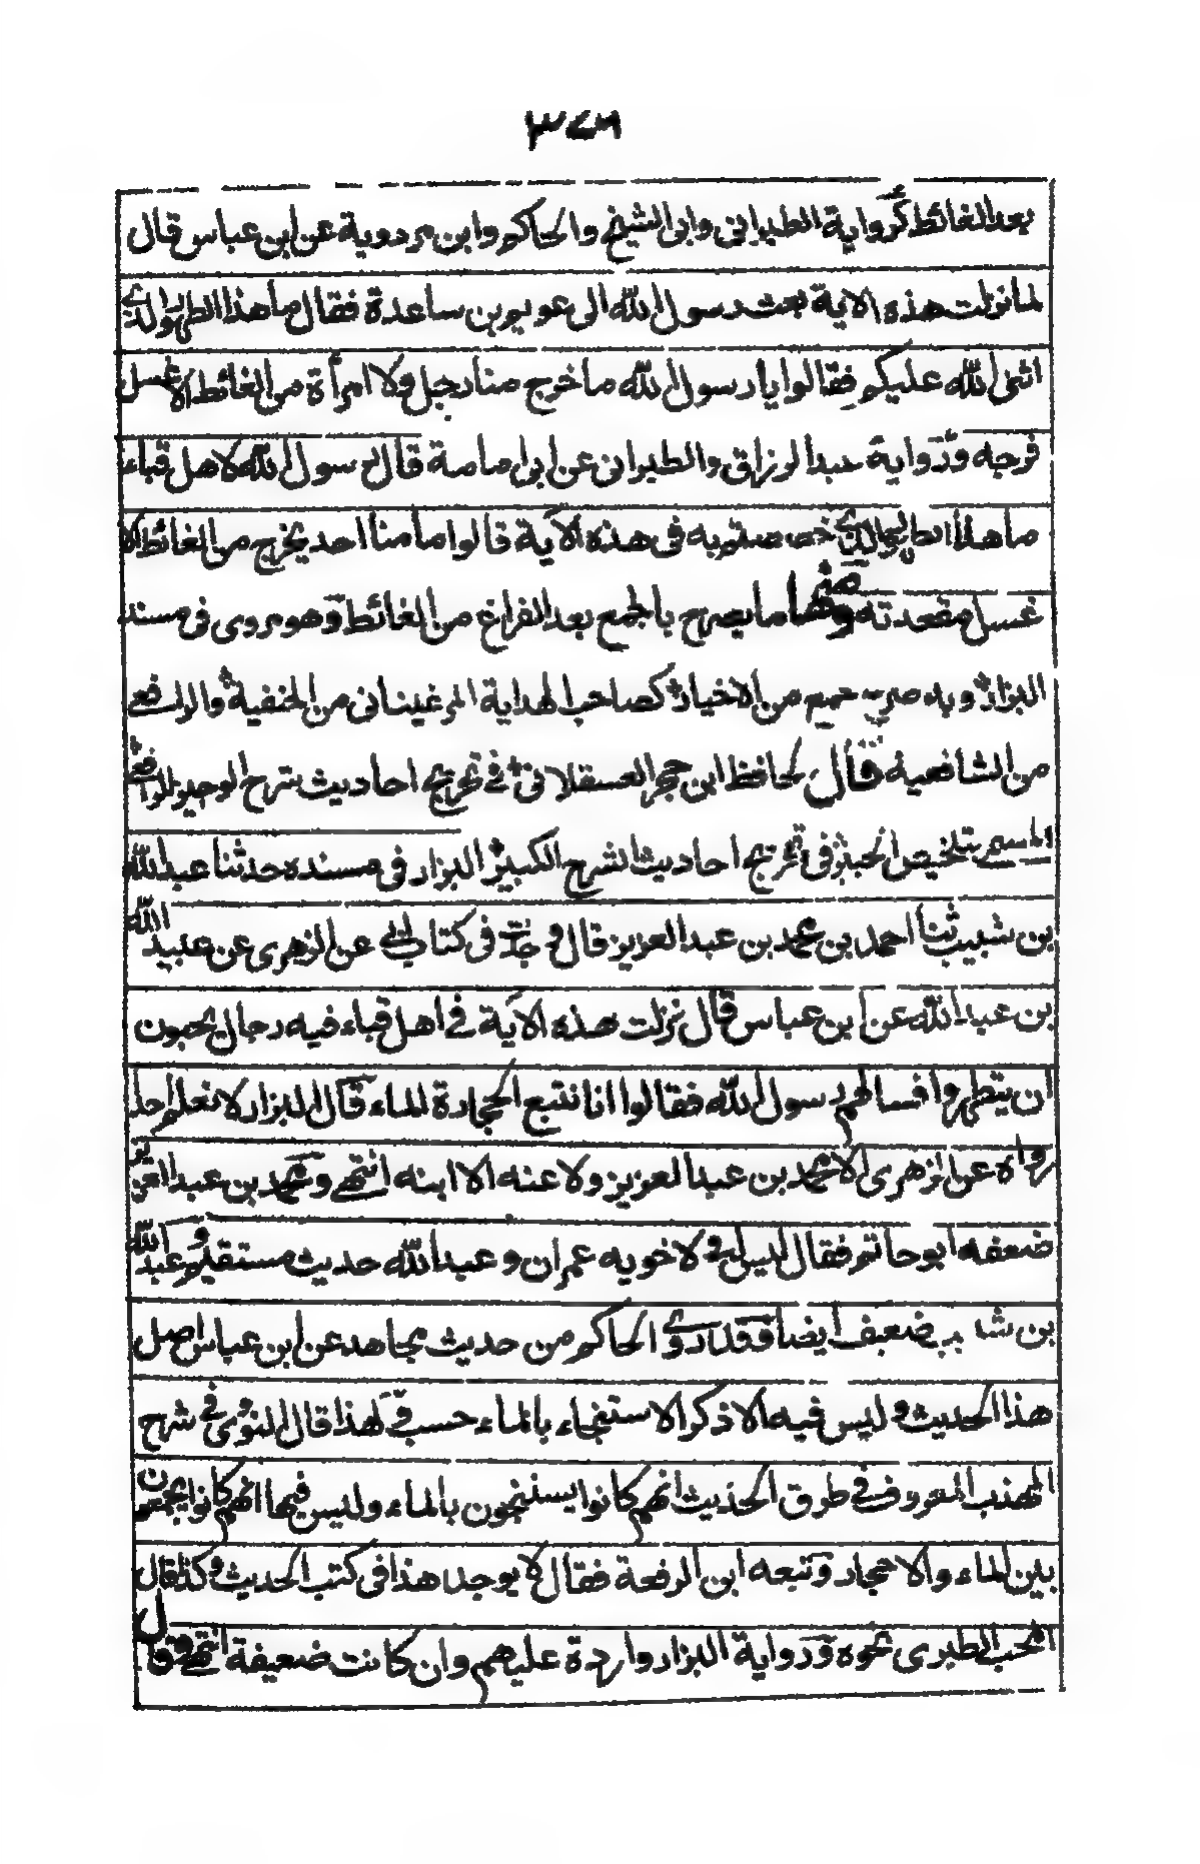 ٣٧٦
بعد الغائط كرواية الطبراني وابي الشيخ والحاكم وابن مردوية عن ابن عباس قال
لما نزلت هذه الاية بعث رسول الله الى عويم بن ساعدة فقال ما هذا الطهور الذي
اثنى الله عليكم فقالوا يا رسول الله ما خرج منا رجل ولا امرأة من الغائط الا غسل
فرجه ورواية عبد الرزاق والطبراني عن ابي امامة قال رسول الله لاهل قباء
ما هذا الطهور الذي خصصتم به في هذه الآية قالوا ما منا احد يخرج من الغائط الا
غسل مقعدته ومنها ما يصرح بالجمع بعد الفراغ من الغائط وهو مروى في مسند
البزار وبه صرح جمع من الاخيار كصاحب الهداية المرغيناني من الحنفية والرافعي
من الشافعية قال الحافظ ابن حجر العسقلاني في تخريج احاديث شرح الوجيز للرافعي
المسمى بتلخيص الحبير في تخريج احاديث الشرح الكبير البزار في مسنده حدثنا عبد الله
بن شبيب ثنا احمد بن محمد بن عبد العزيز قال وجدت في كتاب ابي عن الزهري عن عبيد الله
بن عبد الله عن ابن عباس قال نزلت هذه الآية في اهل قباء فيه رجال يحبون
ان يتطهروا فسالهم رسول الله فقالوا انا نتبع الحجارة الماء قال البزار لا نعلم احدا
رواه عن الزهرى الا محمد بن عبد العزيز ولا عنه الا ابنه انتهى ومحمد بن عبد العزيز
ضعفه ابو حاتم فقال ليس له ولاخويه عمران وعبد الله حديث مستقيم وعبد الله
بن شبيب ضعيف ايضا فقد روى الحاكم من حديث مجاهد عن ابن عباس اصل
هذا الحديث وليس فيه الا ذكر الاستنجاء بالماء حسب ولهذا قال النووى في شرح
المهذب المعروف في طرق الحديث انهم كانوا يستنجون بالماء وليس فيها انهم كانوا يجمعون
بين الماء والاحجار وتبعه ابن الرفعة فقال لا يوجد هذا في كتب الحديث وكذا قال
المحب الطبرى نحوه ورواية البزار واردة عليهم وان كانت ضعيفة انتهى وقال